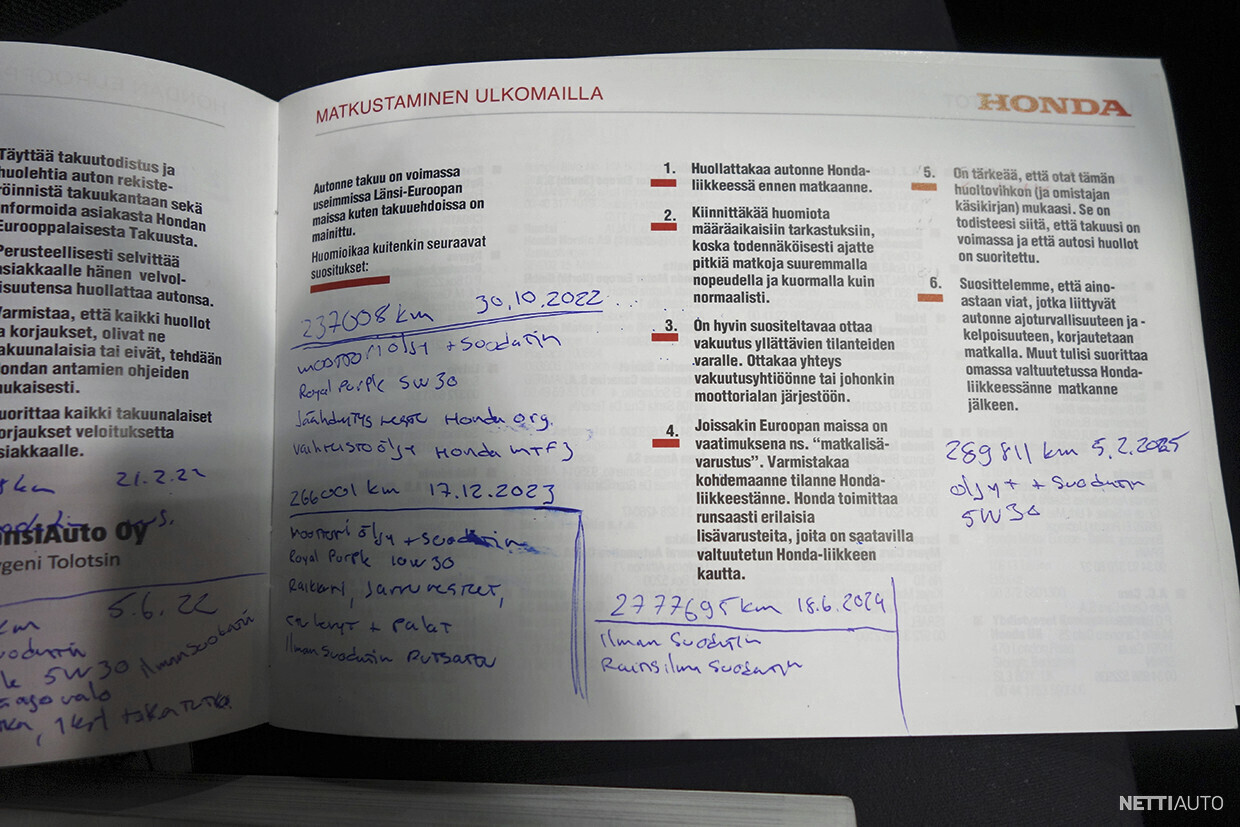 Täyttää takuutodistus ja
huolehtia auton rekiste-
röinnistä takuukantaan sekä
informoida asiakasta Hondan
Eurooppalaisesta Takuusta.
Perusteellisesti selvittää
asiakkaalle hänen velvol-
lisuutensa huollattaa autonsa.
Varmistaa, että kaikki huollot
ja korjaukset, olivat ne
takuunalaisia tai eivät, tehdään
Hondan antamien ohjeiden
mukaisesti.
Suorittaa kaikki takuunalaiset
korjaukset veloituksetta
asiakkaalle.
km 21.2.22
nsiAuto Oy
geni Tolotsin
km 5.6.22
5W30 ilmansuodatin
valo
, 1kpl takatutka
MATKUSTAMINEN ULKOMAILLA
HONDA
Autonne takuu on voimassa
useimmissa Länsi-Euroopan
maissa kuten takuuehdoissa on
mainittu.
Huomioikaa kuitenkin seuraavat
suositukset:
237608 km 30.10.2022
moottoriöljy + suodatin
Royal Purple 5W30
Jäähdytys neste Honda org.
vaihteistoöljyt Honda MTF3
266001 km 17.12.2023
moottori öljy + suodatin
Royal Purple 10W30
Raikkari, Jarrunesteet,
+ palat
Ilmansuodatin putsattu
1. Huollattakaa autonne Honda-
liikkeessä ennen matkaanne.
2. Kiinnittäkää huomiota
määräaikaisiin tarkastuksiin,
koska todennäköisesti ajatte
pitkiä matkoja suuremmalla
nopeudella ja kuormalla kuin
normaalisti.
3. On hyvin suositeltavaa ottaa
vakuutus yllättävien tilanteiden
varalle. Ottakaa yhteys
vakuutusyhtiöönne tai johonkin
moottorialan järjestöön.
4. Joissakin Euroopan maissa on
vaatimuksena ns. “matkalisä-
varustus”. Varmistakaa
kohdemaanne tilanne Honda-
liikkeestänne. Honda toimittaa
runsaasti erilaisia
lisävarusteita, joita on saatavilla
valtuutetun Honda-liikkeen
kautta.
2777695 km 18.6.2024
Ilman suodatin
Raitisilma suodatin
5. On tärkeää, että otat tämän
huoltovihkon (ja omistajan
käsikirjan) mukaasi. Se on
todisteesi siitä, että takuusi on
voimassa ja että autosi huollot
on suoritettu.
6. Suosittelemme, että aino-
astaan viat, jotka liittyvät
autonne ajoturvallisuuteen ja -
kelpoisuuteen, korjautetaan
matkalla. Muut tulisi suorittaa
omassa valtuutetussa Honda-
liikkeessänne matkanne
jälkeen.
289811 km 5.2.2025
öljyt + suodatin
5W30
NETTIAUTO